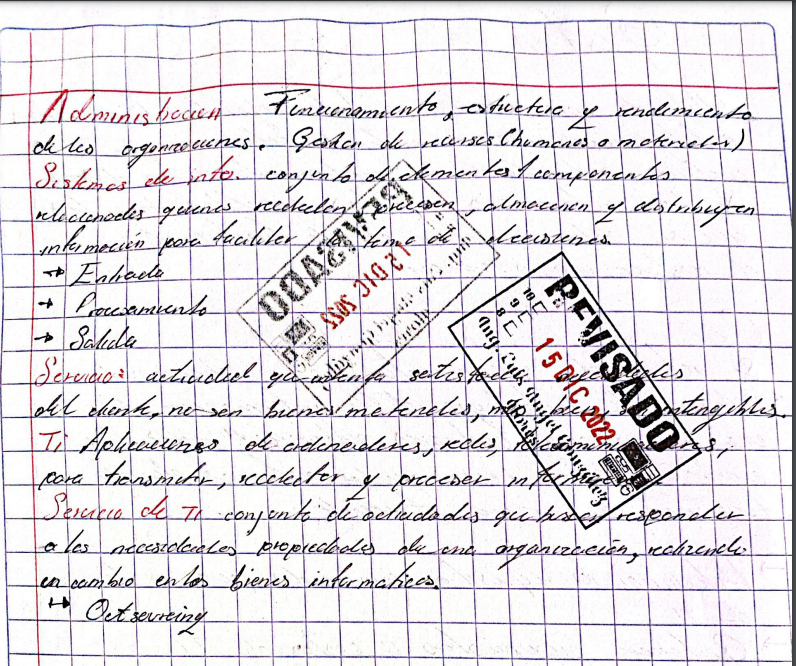 Administración Funcionamiento, estructura y rendimiento
de las organizaciones. Gestión de recursos (humanos o materiales)
Sistemas de info. conjunto de elementos / componentes
relacionados quienes recolectan, procesan, almacenan y distribuyen
información para facilitar la toma de decisiones.
→ Entrada
→ Procesamiento
→ Salida
Servicio: actividad que intenta satisfacer necesidades
del cliente, no son bienes materiales, intangibles.
TI Aplicaciones de ordenadores, redes,
para transmitir, recolectar y procesar
Servicio de TI conjunto de actividades que buscan responder
a las necesidades propiedades de una organización, realizando
un cambio en los bienes informaticos.
↦ Outsourcing
REVISADO
15 DIC 2022
10
9
8
REVISADO
15 DIC 2022